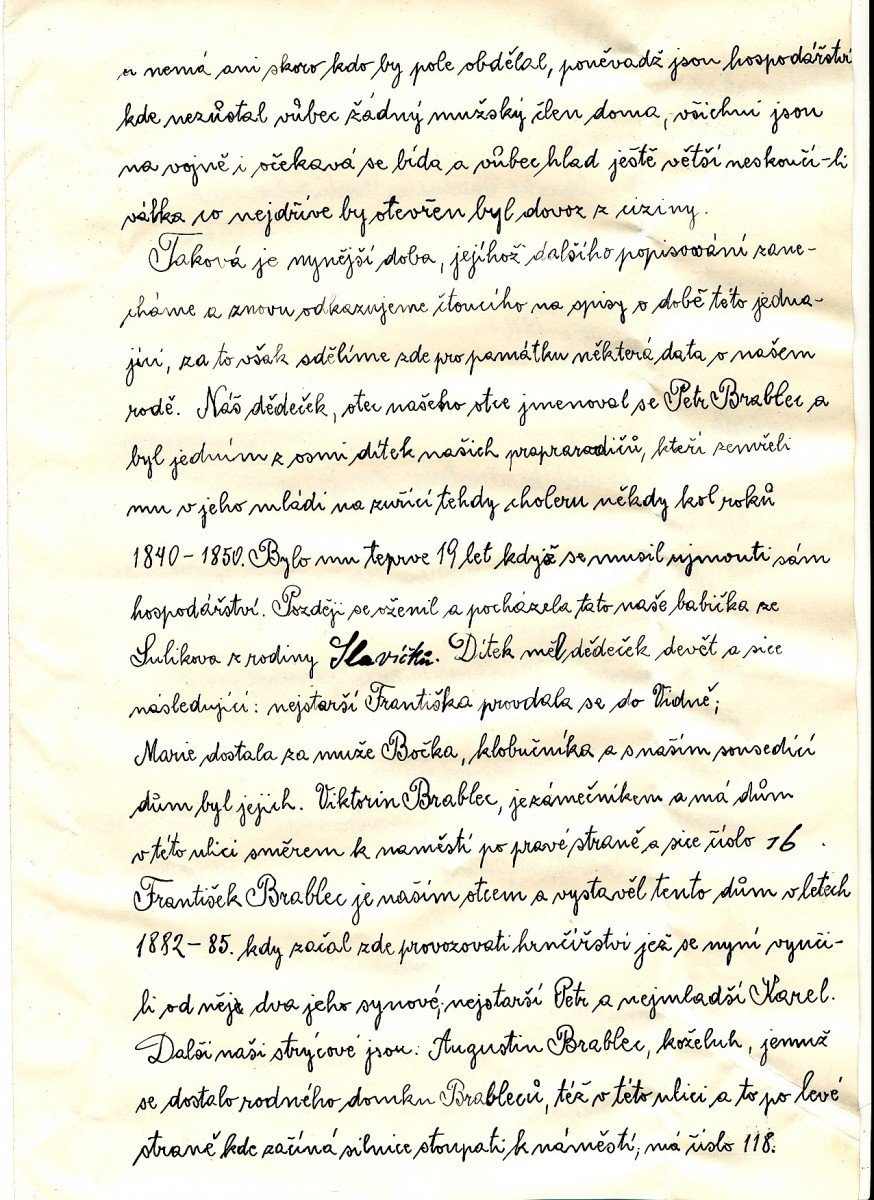 a nemá ani skoro kdo by pole obdělal, poněvadž jsou hospodářství
kde nezůstal vůbec žádný mužský člen doma, všichni jsou
na vojně i očekavá se bída a vůbec hlad ještě větší neskončí-li
válka co nejdříve by otevřen byl dovoz z ciziny.
Taková je nynější doba, jejíhož dalšího popisování zane-
cháme a znovu odkazujeme čtoucího na spisy o době této jedna-
jící, za to však sdělíme zde pro památku některá data o našem
rodě. Náš dědeček, otec našeho otce jmenoval se Petr Brablec a
byl jedním z osmi dítek našich praprarodičů, kteří zemřeli
mu v jeho mládí na zuřící tehdy choleru někdy kol roků
1840-1850. Bylo mu teprve 19 let když se musil ujmouti sám
hospodářství. Později se oženil a pocházela tato naše babička ze
Sulikova z rodiny Slavíčků. Dítek měl dědeček devět a sice
následující: nejstarší Františka provdala se do Vídně;
Marie dostala za muže Bočka, klobučníka a s naším sousedící
dům byl jejich. Viktorin Brablec, je zámečníkem a má dům
v této ulici směrem k naměstí po pravé straně a sice číslo 76.
František Brablec je naším otcem a vystavěl tento dům v letech
1882-85. kdy začal zde provozovati hrnčířství jež se nyní vyuči-
li od něje dva jeho synové, nejstarší Petr a nejmladší Karel.
Další naši strýcové jsou: Augustin Brablec, koželuh, jemuž
se dostalo rodného domku Brableců, též v této ulici a to po levé
straně kde začíná silnice stoupati k náměstí, má číslo 118.